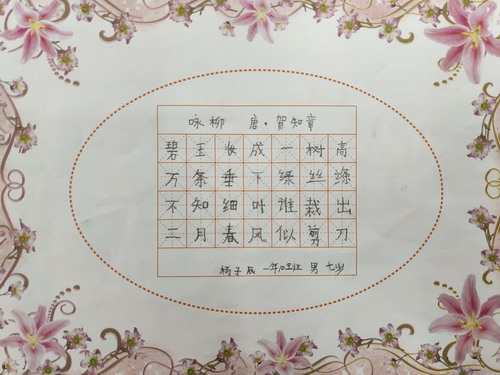 咏柳 唐·贺知章
碧玉妆成一树高
万条垂下绿丝绦
不知细叶谁裁出
二月春风似剪刀
杨子辰 男 七岁